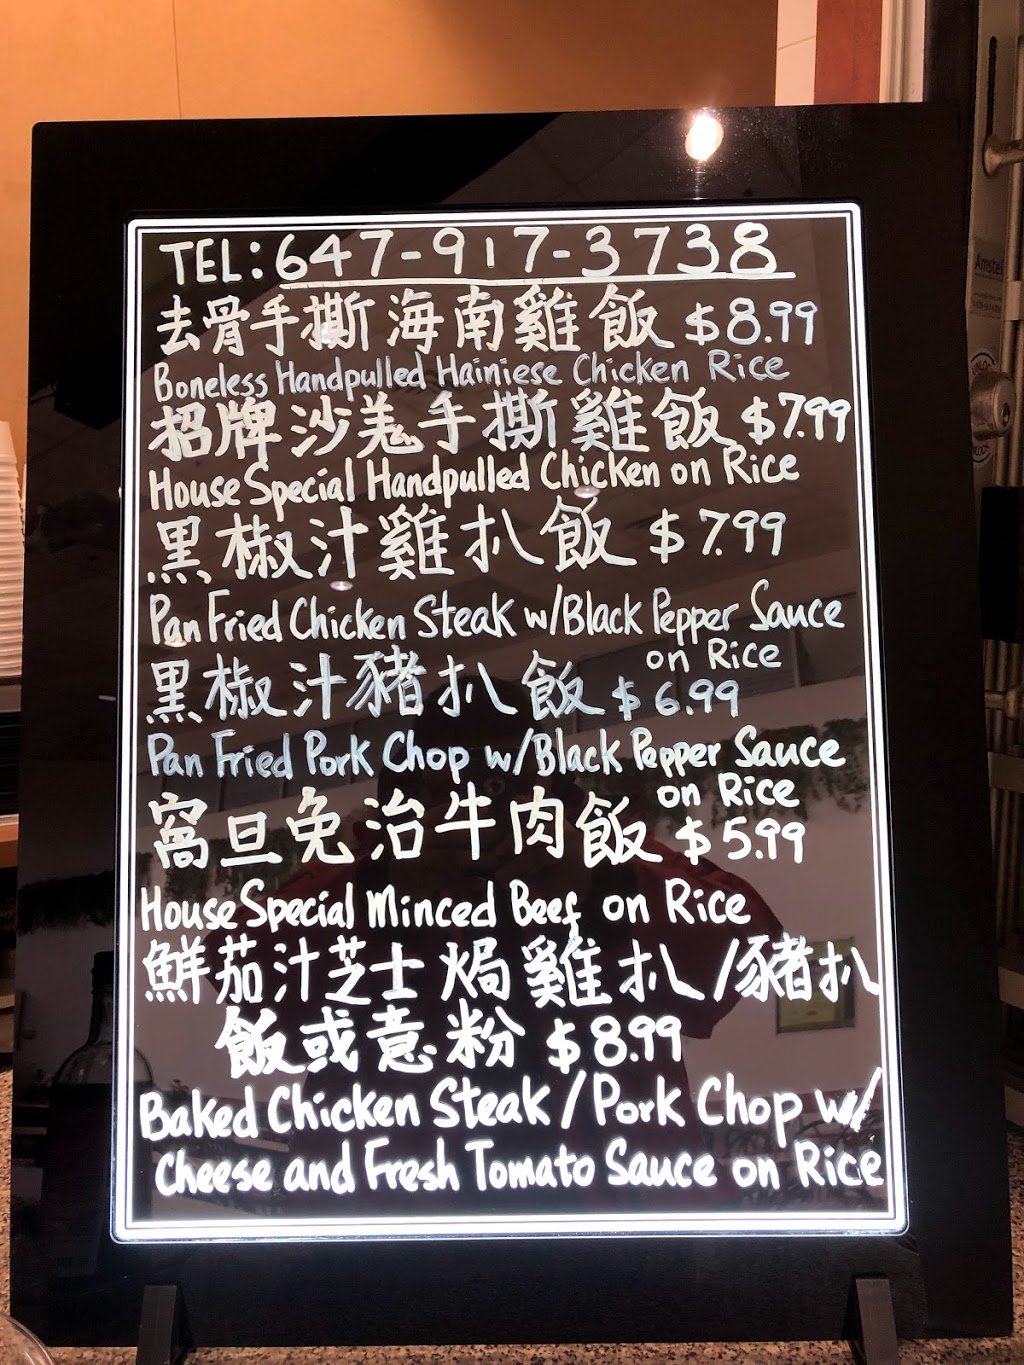 TEL: 647-917-3738
去骨手撕海南雞飯 $8.99
Boneless Handpulled Hainiese Chicken Rice
招牌沙羌手撕雞飯 $7.99
House Special Handpulled Chicken on Rice
黑椒汁雞扒飯 $7.99
Pan Fried Chicken Steak w/Black Pepper Sauce
on Rice
黑椒汁豬扒飯 $6.99
Pan Fried Pork Chop w/Black Pepper Sauce
on Rice
窩旦免治牛肉飯 $5.99
House Special Minced Beef on Rice
鮮茄汁芝士焗雞扒/豬扒
飯或意粉 $8.99
Baked Chicken Steak/Pork Chop w/
Cheese and Fresh Tomato Sauce on Rice